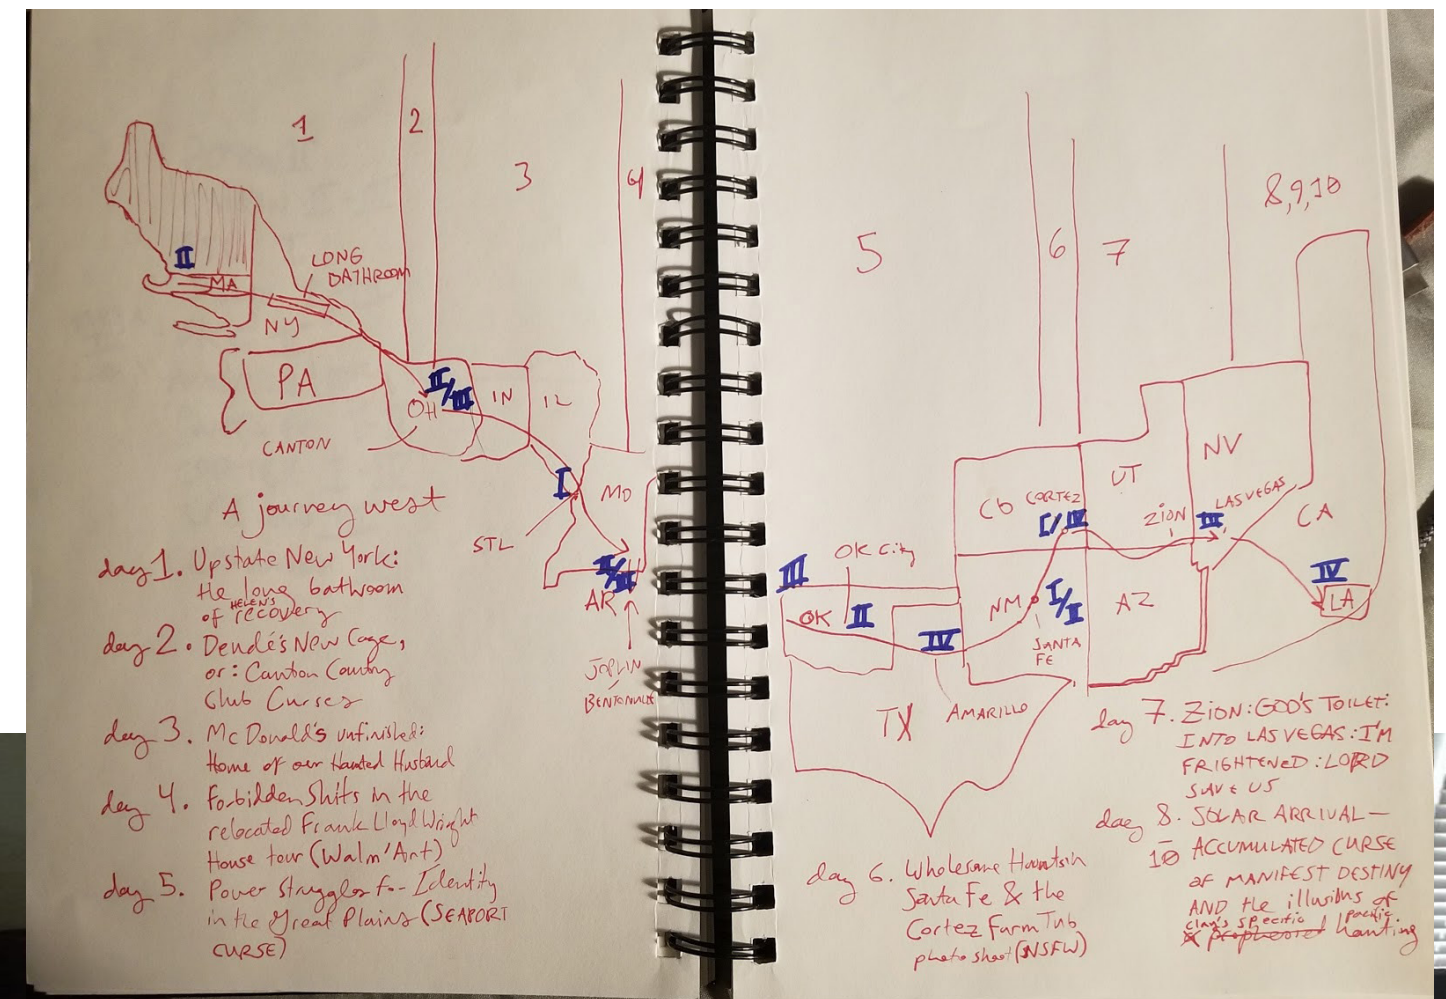 1
2
3
4
II
MA
LONG
BATHROOM
NY
PA
II/III
OH
IN
IL
CANTON
I
MO
STL
II/III
AR
JOPLIN
BENTONVILLE
A journey west
day 1. Upstate New York:
the long bathroom
of HELEN'S recovery
day 2. Dendé's New Cage,
or: Canton Country
Club Curses
day 3. McDonald's unfinished:
Home of our Haunted Husband
day 4. Forbidden Shits in the
relocated Frank Lloyd Wright
House tour (Walm'Art)
day 5. Power Struggles for Identity
in the Great Plains (SEAPORT
CURSE)
5
6
7
8,9,10
CO
CORTEZ
I/IV
UT
NV
ZION
LAS VEGAS
III
CA
OK City
III
OK
II
IV
NM
I/II
SANTA
FE
AZ
IV
LA
TX
AMARILLO
day 6. Wholesome Hauntsin
Santa Fe & the
Cortez Farm Tub
photo shoot (NSFW)
day 7. ZION: GOD'S TOILET:
INTO LAS VEGAS: I'M
FRIGHTENED: LORD
SAVE US
day 8. SOLAR ARRIVAL—
–10 ACCUMULATED CURSE
OF MANIFEST DESTINY
AND the illusions of
clay's specific pacific
haunting